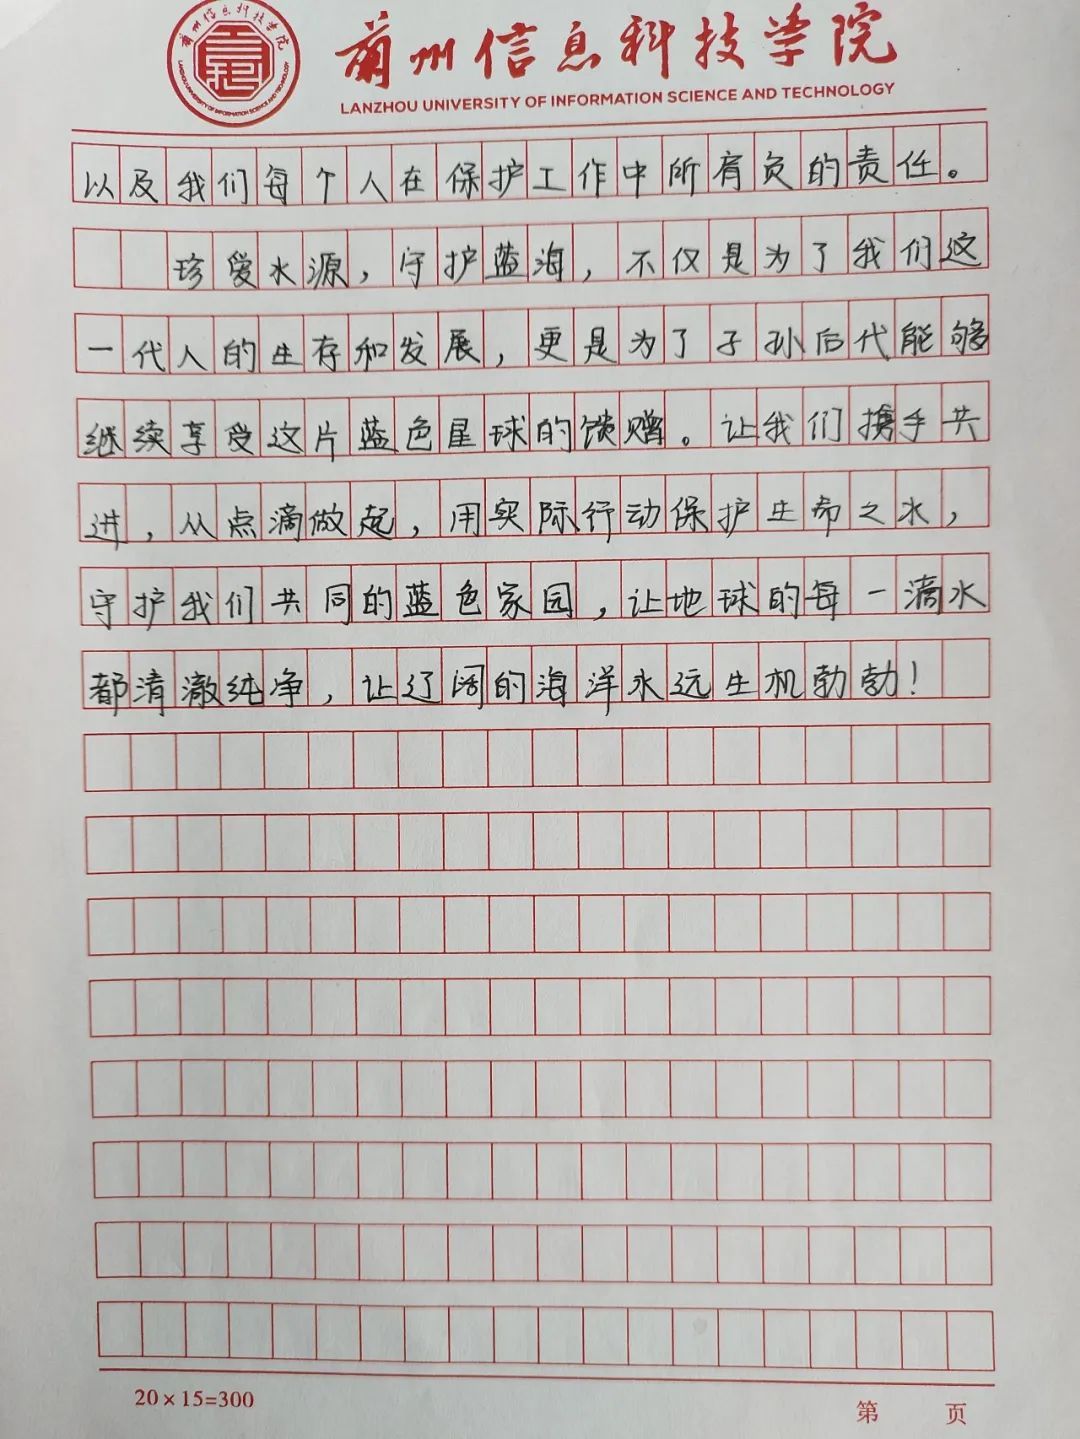 兰州信息科技学院
LANZHOU UNIVERSITY OF INFORMATION SCIENCE AND TECHNOLOGY
兰州信息科技学院
LANZHOU UNIVERSITY OF INFORMATION SCIENCE AND TECHNOLOGY
以及我们每个人在保护工作中所有负的责任。
珍爱水源，守护蓝海，不仅是为了我们这
一代人的生存和发展，更是为了子孙后代能够
继续享受这片蓝色星球的馈赠。让我们携手共
进，从点滴做起，用实际行动保护生命之水，
守护我们共同的蓝色家园，让地球的每一滴水
都清澈纯净，让辽阔的海洋永远生机勃勃！
20×15=300
第 页